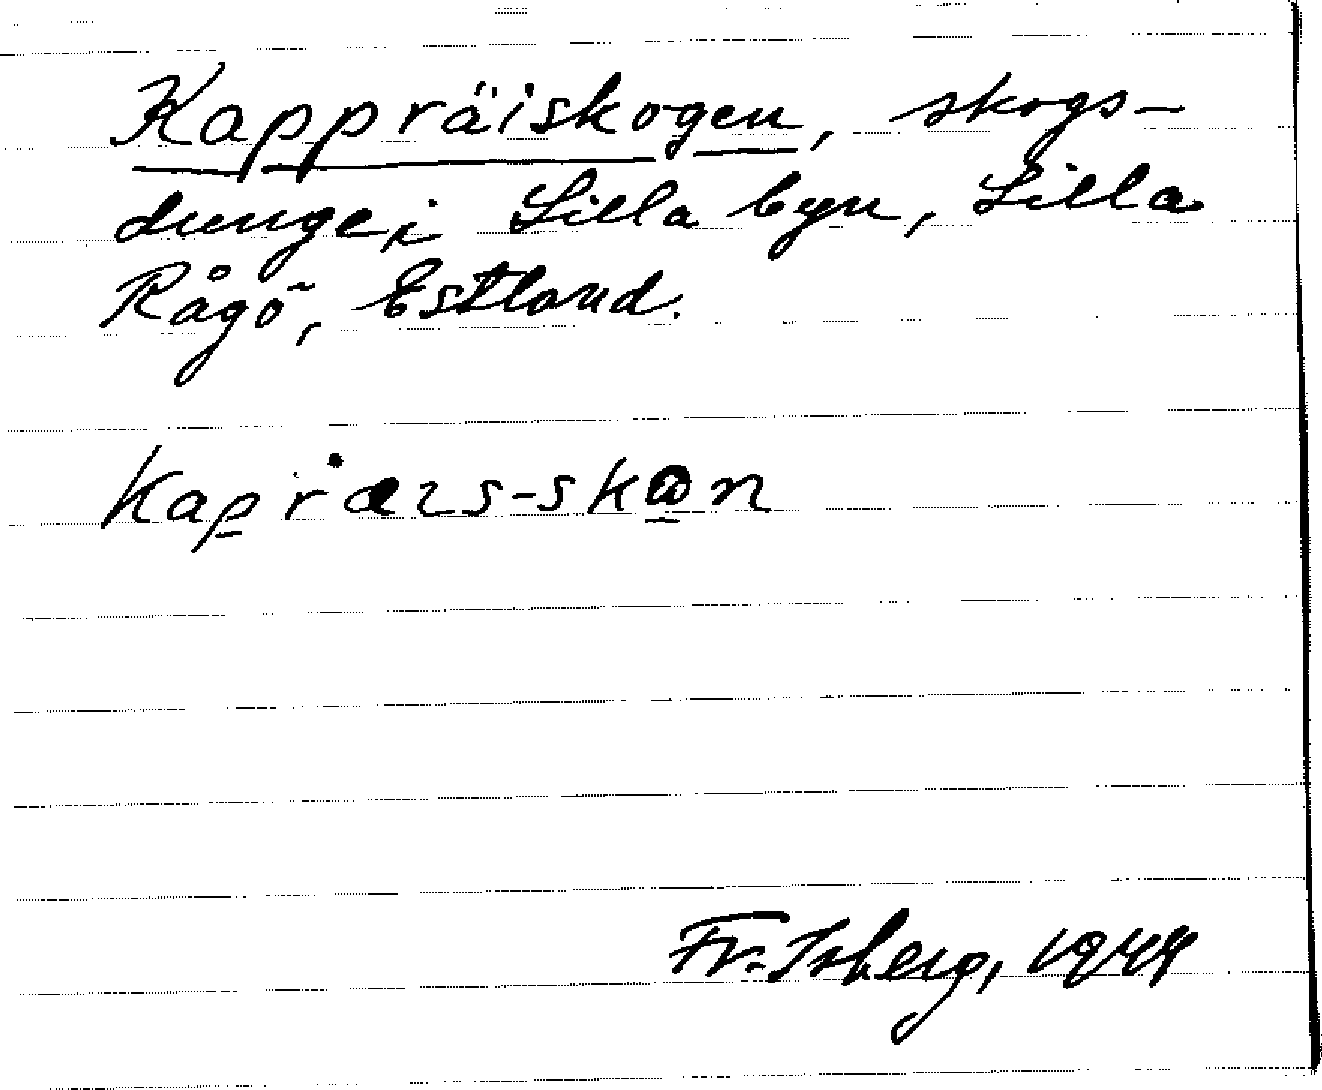 Kappräiskogen, skogs-
dunge i Lilla byn, Lilla
Rågö, Estland.
Kapræıs-skɷn
Fr. Isberg, 1944